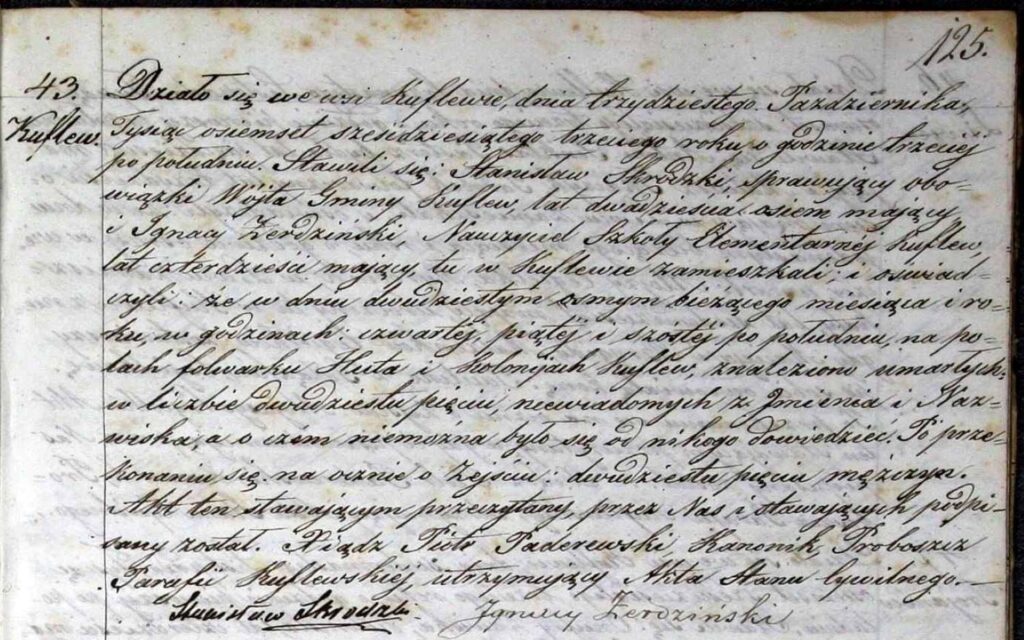 125.
43. Działo się we wsi Kuflewie, dnia trzydziestego Pazdziernika,
Kuflew. Tysiąc osiemset szescdziesiątego trzeciego roku o godzinie trzeciej
po południu. Stawili się: Stanisław Skrodzki, sprawujący obo-
wiązki Wójta Gminy Kuflew, lat dwadzieścia osiem mający,
i Ignacy Żerdziński, Nauczyciel Szkoły Elementarnéj Kuflew,
lat czterdzieści mający, tu w Kuflewie zamieszkali; i oświad-
czyli: że w dniu dwudziestym osmym bieżącego miesiąca i ro-
ku, w godzinach: czwartéj, piątéj i szóstéj po południu, na po-
lach folwarku Huta i Kolonijach Kuflew, znaleziono umarłych
w liczbie dwudziestu pięciu, niewiadomych z Imienia i Naz-
wiska, a o czem niemożna było się od nikogo dowiedzieć. Po prze-
konaniu się na ocznie o Zejściu: dwudziestu pięciu mężczyzn.
Akt ten stawającym przeczytany, przez Nas i stawających podpi-
sany został. Xiądz Piotr Paderewski, Kanonik, Proboszcz
Parafii Kuflewskiéj, utrzymujący Akta Stanu Cywilnego.—
Stanisław Skrodzki. Ignacy Żerdziński